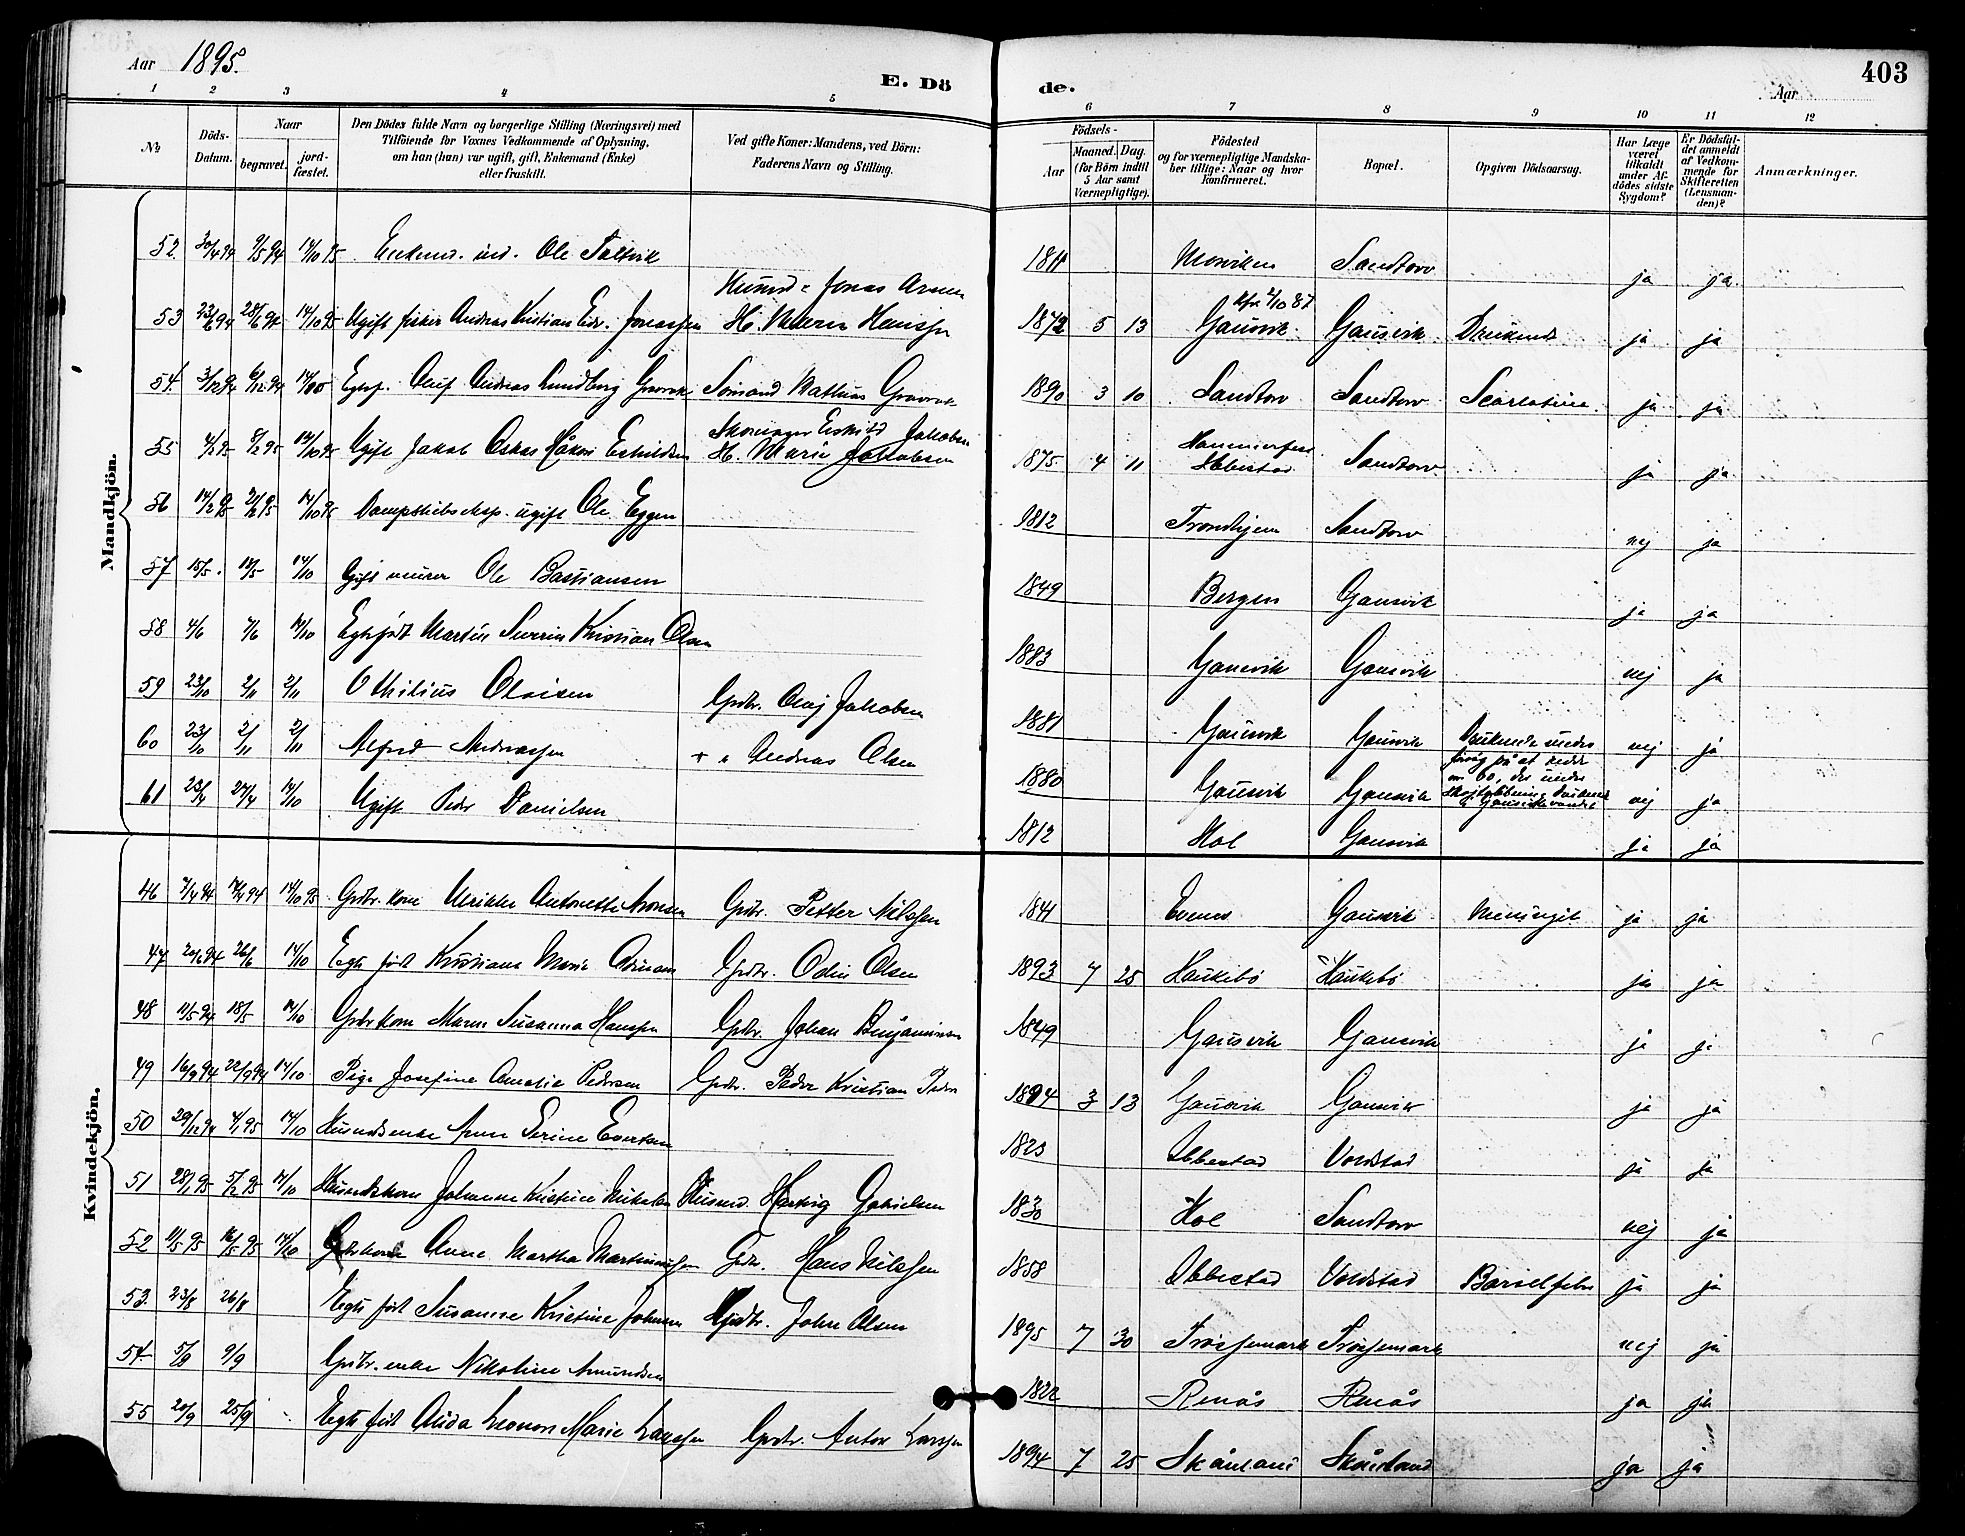 Aar 1895.
E. Dö
de.
Aar
403
1 2 3 4 5 6 7 8 9 10 11 12
No
Döds-Datum.
Naar
begravet.
jord-fæstet.
Den Dödes fulde Navn og borgerlige Stilling (Næringsvei) med
Tilföiende for Voxnes Vedkommende af Oplysning,
om han (hun) var ugift, gift, Enkemand (Enke)
eller fraskilt.
Ved gifte Koner: Mandens, ved Börn:
Faderens Navn og Stilling.
Födsels-
Aar
Maaned. Dag.
(for Börn indtil
5 Aar samt
Værnepligtige).
Födested
og for værnepligtige Mandska-
ber tillige: Naar og hvor
konfirmeret.
Bopæl.
Opgiven Dödsaarsag.
Har Læge
været
tilkaldt
under Af-
dödes sidste
Sygdom?
Er Dödsfal-
det anmeldt
af Vedkom-
mende for
Skifteretten
(Lensman-
den)?
Anmærkninger.
Mandkjön.
52. 30/4 94 9/5 94 14/10 95 Enkemd. ind. Ole 1811 Sandtorv ja ja.
53 23/6 94 28/6 94 14/10 95 Ugift fisker Andreas Kristian Edv. Jonassen Jonas H. Maren Hanssen 1872 5 13 kfr 2/10 87 Gausvik. Gausvik. Druknede ja ja
54. 3/12 94 6/12 94 Egtef. Oluf Andreas Lundberg Sömand Mathias 1890 3 10 Sandtorv Sandtorv Scarlatina. ja ja
55 4/2 95 8/2 95 14/10 95 Ugift Jakob Oskar Håkon Eskildsen Skomager Eskild Jakobsen H. Marie Jakobsen 1875 4 11 Hammerfest Ibbestad Sandtorv ja ja
56 14/2 95 21/2 95 14/10 95 Dampskibseksp. ugift Ole Eggen 1812 Trondhjem Sandtorv nej ja
57 15/5. 18/5 14/10 Gift murer Ole Bastiansen 1849 Bergen Gausvik ja ja
58 4/6 7/6 14/10 Egtefödt Martin Severin Kristian Olsen 1883 Gausvik Gausvik nej ja
59 23/10 2/11 2/11 Othilius Olaisen Grdbr. Olaj Jakobsen 1881 Gausvik Gausvik Druknede under nej ja
60 23/10 2/11 2/11 Alfred Andreassen + " Andreas Olsen 1880 Gausvik Gausvik forsög på at redde no 60, der under nej ja
61 23/4 27/4 14/10 Ugift Peder Danielsen 1812 Hol Gausvik ja ja
Kvindekjön.
46 7/4 94 14/4 94 14/10 95. Grdbr. kone Ulrikke Antonette Aronsen Grdbr. Petter Nilssen 1841 Evenes Gausvik Meningit ja ja
47 26/6 14/10 Egte födt Kristiane Marie Grdbr. Odin Olsen 1893 7 25 Haukebö Haukebö ja ja
48 11/5 94 18/5 14/10 Grdbr kone Maren Susanna Hanssen Grdbr. Johan Benjaminsen 1849 Gausvik Gausvik ja ja
49 16/9 94 22/9 94 14/10 Pige Josefine Amalie Pedersen Grdbr. Peder Kristian Peders 1894 3 13 Gausvik Gausvik ja ja
50 29/12 94 4/1 95 14/10 Husmdsenke Anne Serine Evertsen 1823 Ibbestad Voldstad ja ja
51 28/1 95 5/2 95 14/10 Husmdskone Johanne Kristine Mikkelsen Husmd. Hartvig Gabrielsen 1830 Hol Sandtorv nej ja
52 11/5 95 16/5 95 14/10 Grdbrkone Anne Martha Martinussen Grdbr. Hans Nilssen 1858 Ibbestad Voldstad Barselfeber ja ja
53. 23/8 26/8 Egte født Susanne Kristine Johnsen Grdbr. John Olsen 1895 7 30 Trössemark Trössemark nej ja
54. 5/9 9/9 Grdbr. enke Nikoline Amundsen 1822 Renås Renås ja ja
55 20/9 25/9 Egte født Alida Leonore Marie Larssen Grdbr. Anton Larssen 1894 7 25 Skånland Skånland ja ja